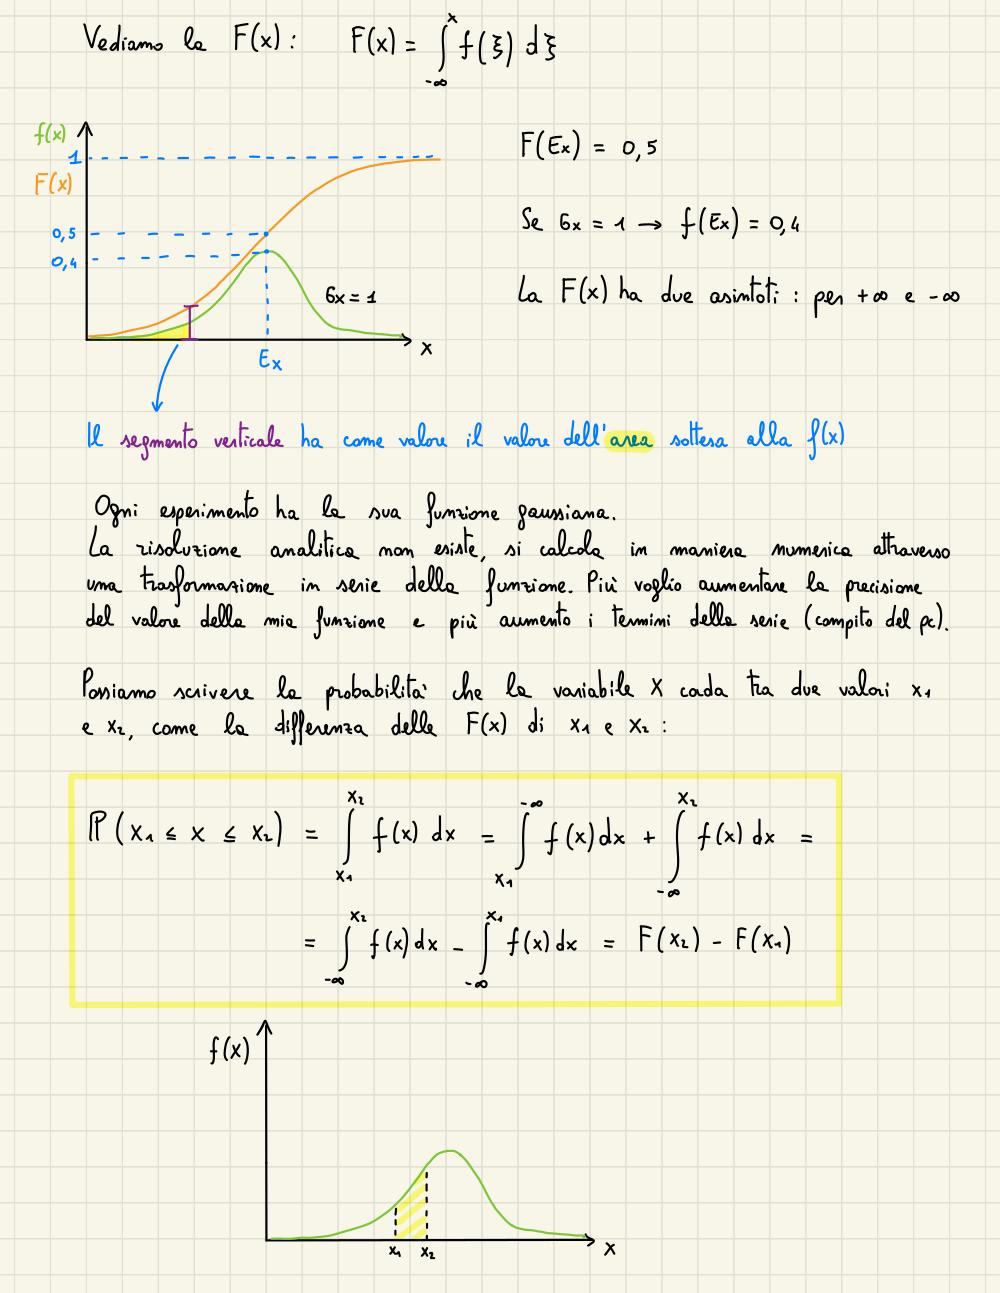 Vediamo la F(x): F(x) = ∫_{-∞}^{x} f(ξ) dξ
f(x)
1
F(x)
0,5
0,4
σx = 1
x
Ex
F(Ex) = 0,5
Se σx = 1 → f(Ex) = 0,4
La F(x) ha due asintoti : per +∞ e -∞
Il segmento verticale ha come valore il valore dell'area sottesa alla f(x)
Ogni esperimento ha la sua funzione gaussiana.
La risoluzione analitica non esiste, si calcola in maniera numerica attraverso
una trasformazione in serie della funzione. Più voglio aumentare la precisione
del valore della mia funzione e più aumento i termini della serie (compito del pc).
Possiamo scrivere la probabilità che la variabile X cada tra due valori x₁
e x₂, come la differenza delle F(x) di x₁ e x₂ :
ℙ(x₁ ≤ x ≤ x₂) = ∫_{x₁}^{x₂} f(x) dx = ∫_{x₁}^{-∞} f(x) dx + ∫_{-∞}^{x₂} f(x) dx =
= ∫_{-∞}^{x₂} f(x) dx - ∫_{-∞}^{x₁} f(x) dx = F(x₂) - F(x₁)
f(x)
x₁ x₂
x